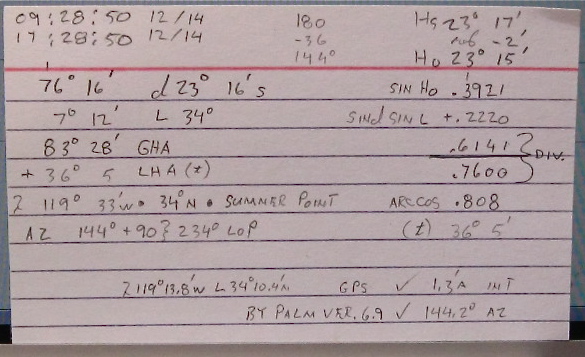 09:28:50 12/14 180 Hs 23° 17'
17:28:50 12/14 -36 -2'
144° Ho 23° 15'
76° 16' d 23° 16's SIN Ho .3921
7° 12' L 34° SINd SIN L +.2220
83° 28' GHA .6141 } DIV.
+ 36° 5 LHA (t) .7600
λ 119° 33'W • 34°N • SUMNER POINT ARCCOS .808
AZ 144° + 90 } 234° LOP (t) 36° 5'
λ 119° 13.8'W L 34° 10.4'N GPS ✓ 1.3'A INT
BY PALM VER. 6.9 ✓ 144.2° AZ